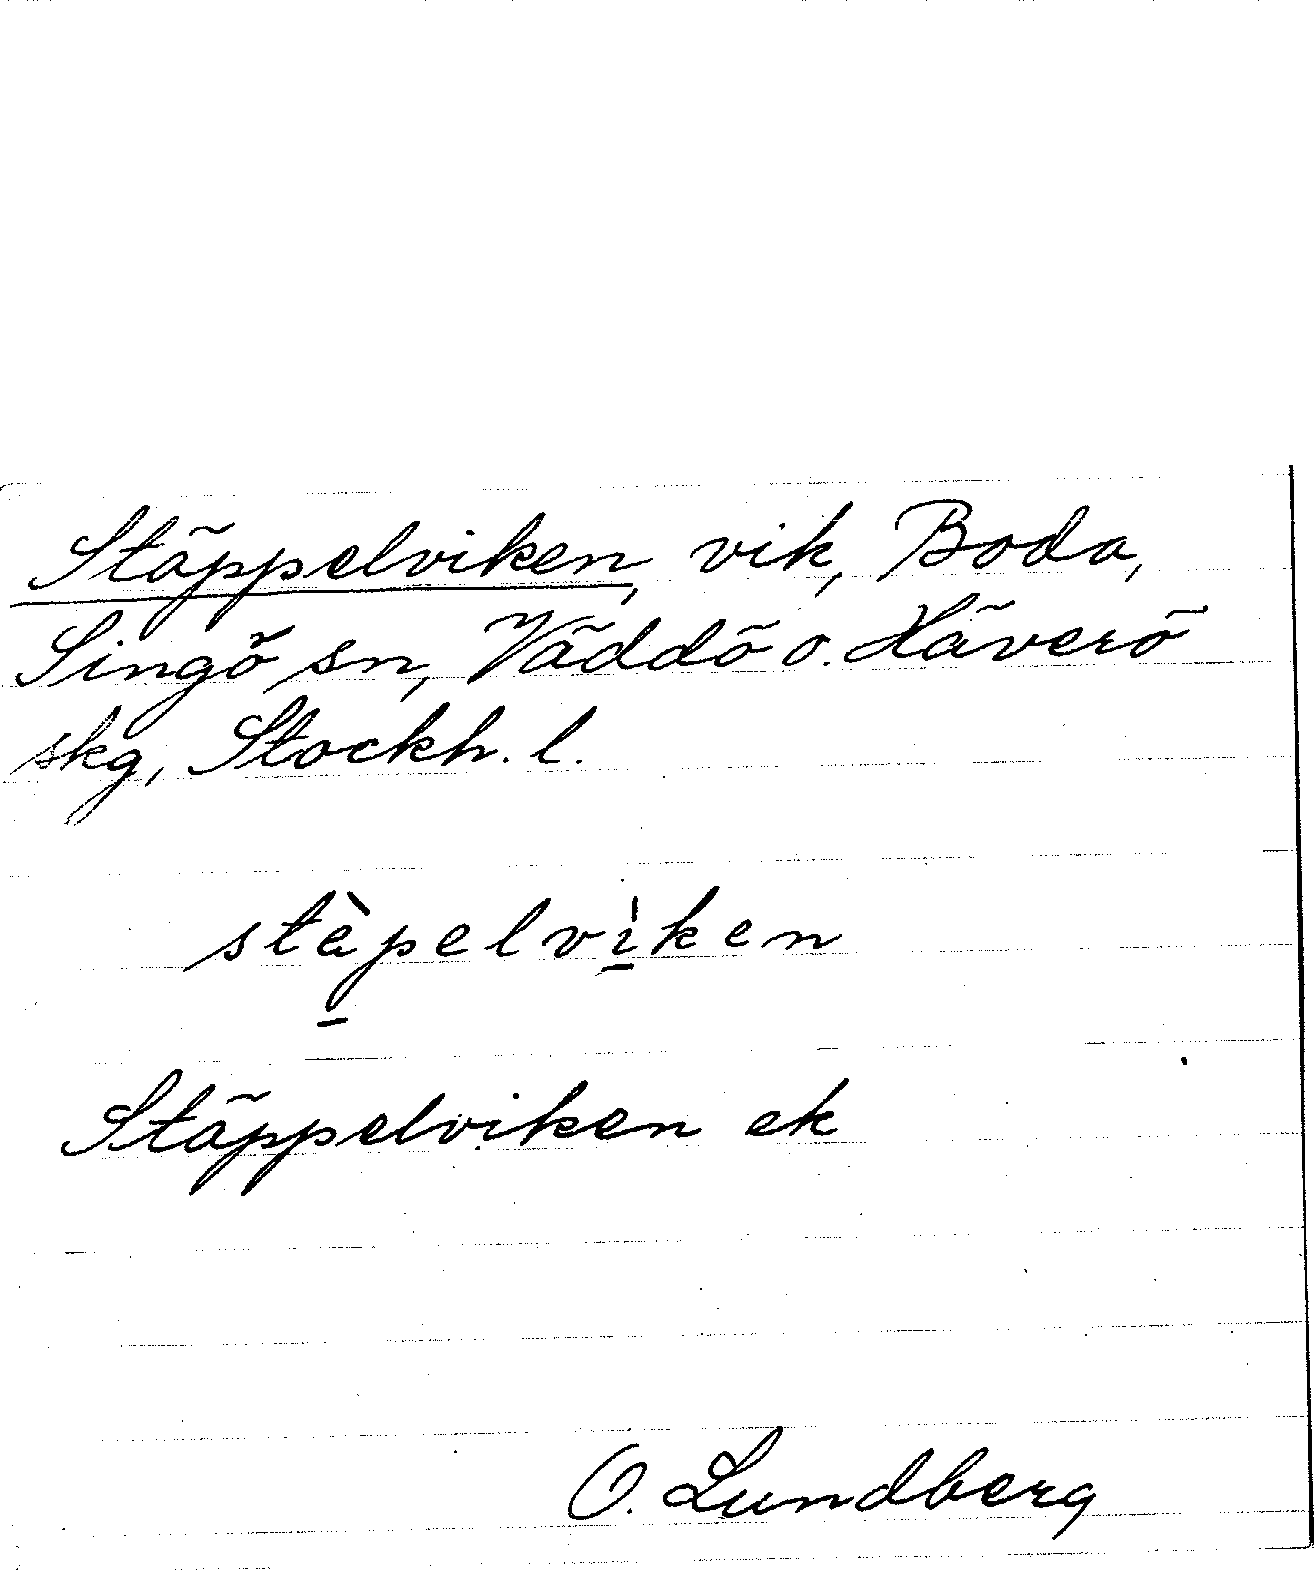 Stäppelviken, vik, Boda,
Singö sn, Väddö o. Häverö
skg, Stockh. l.
stèpelvìken
Stäppelviken ek
O. Lundberg